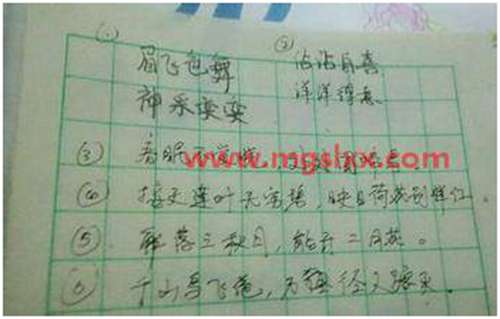 (1) ②
眉飞色舞 沾沾自喜
神采奕奕 洋洋得意
③ 春眠不觉晓,处处闻啼鸟
www.mgshx.com
④ 接天莲叶无穷碧,映日荷花别样红。
⑤ 解落三秋月,能开二月花。
⑥ 千山鸟飞绝,万径人踪灭。